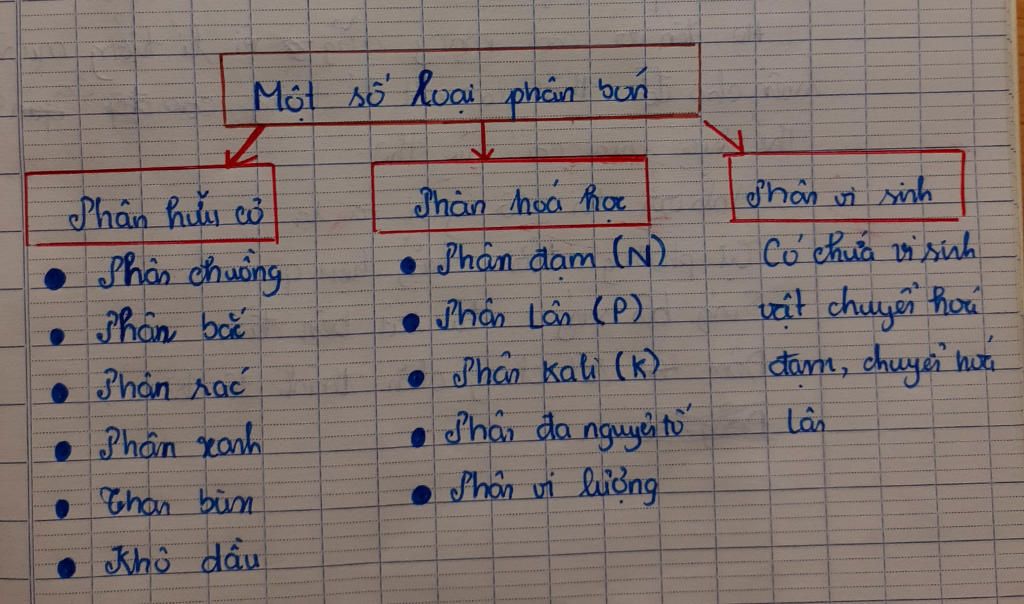 Một số loại phân bón
Phân hữu cơ
Phân chuồng
Phân bắc
Phân rác
Phân xanh
Than bùn
Khô dầu
Phân hoá học
Phân đạm (N)
Phân Lân (P)
Phân Kali (K)
Phân đa nguyên tố
Phân vi lượng
Phân vi sinh
Có chứa vi sinh
vật chuyển hoá
đạm, chuyển hoá
lân